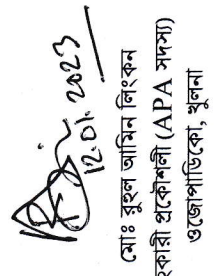 12.01.2023
মোঃ রুহুল আমিন লিংকন
হকারী প্রকৌশলী (APA সদস্য)
ওজোপাডিকো, খুলনা